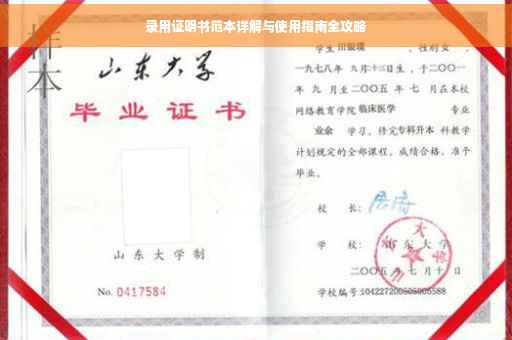 录用证明书范本详解与使用指南全攻略
样本
山东大学
毕业证书
山东大学制
No. 0417584
学生田银瑞 ，性别女 ，
一九七八年 九月十三日生，于二〇〇一
年 九 月至二〇〇五 年 七 月在本校
网络教育学院临床医学 专业
业余 学习，修完专科升本 科教学
计划规定的全部课程，成绩合格，准予
毕业。
校 长：
学 校：山东大学
二〇〇五年七月十日
学校编号:104227200505005588